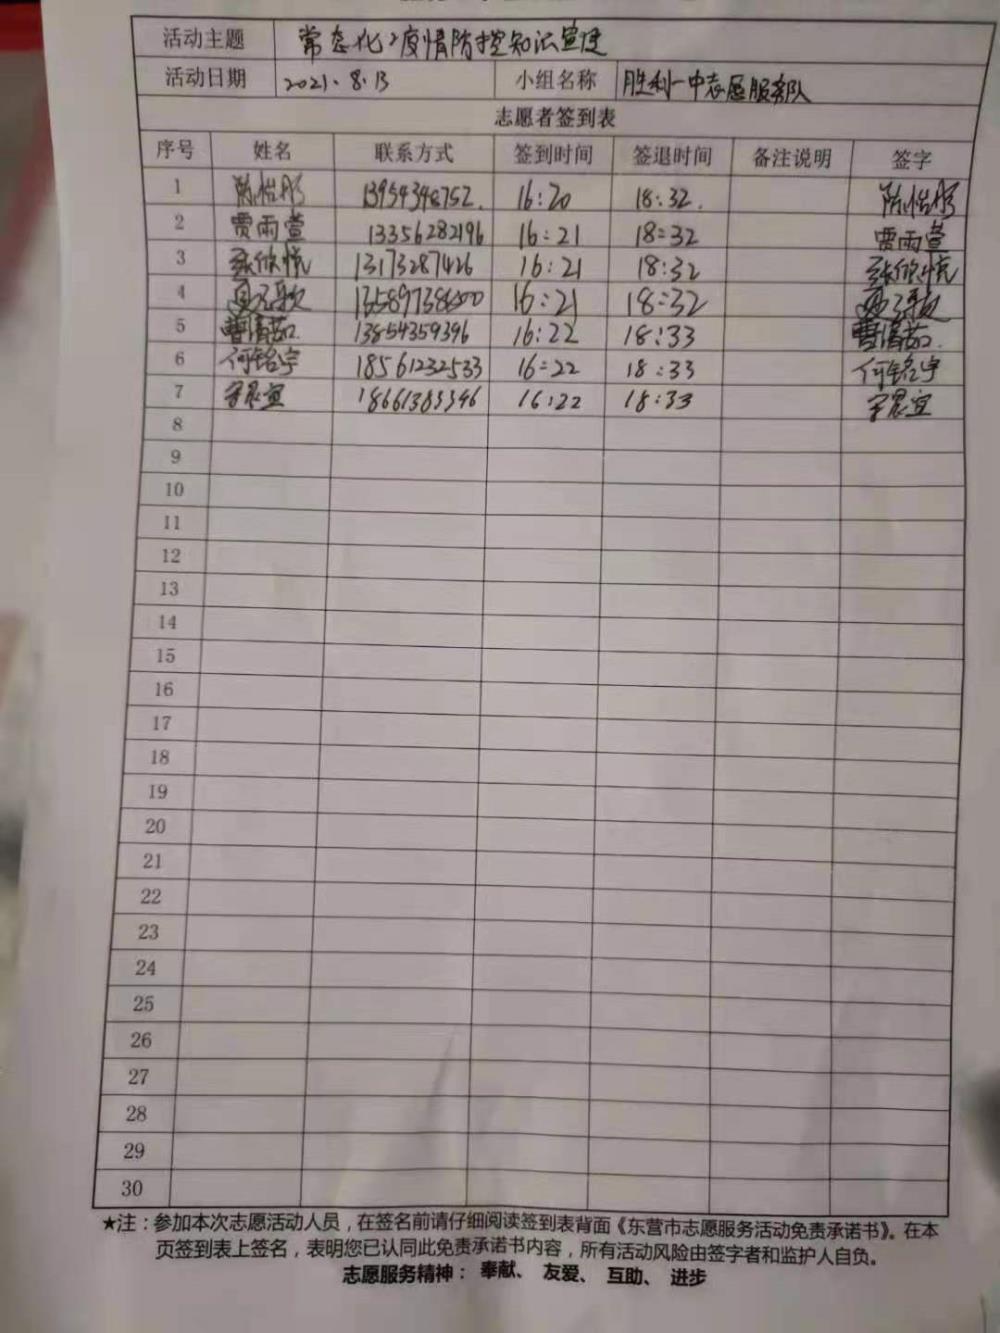 活动主题 常态化疫情防控知识宣传
活动日期 2021.8.13 小组名称 胜利一中志愿服务队
志愿者签到表
序号 姓名 联系方式 签到时间 签退时间 备注说明 签字
1 陈怡彤 16:20 18:32. 陈怡彤
2 贾雨萱 13356282196 16:21 18:32 贾雨萱
3 张欣悦 13173287426 16:21 18:32 张欣悦
4 16:21 18:32
5 曹清茹 13854359396 16:22 18:33 曹清茹
6 何铭宇 18561232533 16:22 18:33 何铭宇
7 18661383346 16:22 18:33
8
9
10
11
12
13
14
15
16
17
18
19
20
21
22
23
24
25
26
27
28
29
30
★注：参加本次志愿活动人员，在签名前请仔细阅读签到表背面《东营市志愿服务活动免责承诺书》。在本
页签到表上签名，表明您已认同此免责承诺书内容，所有活动风险由签字者和监护人自负。
志愿服务精神： 奉献、 友爱、 互助、 进步